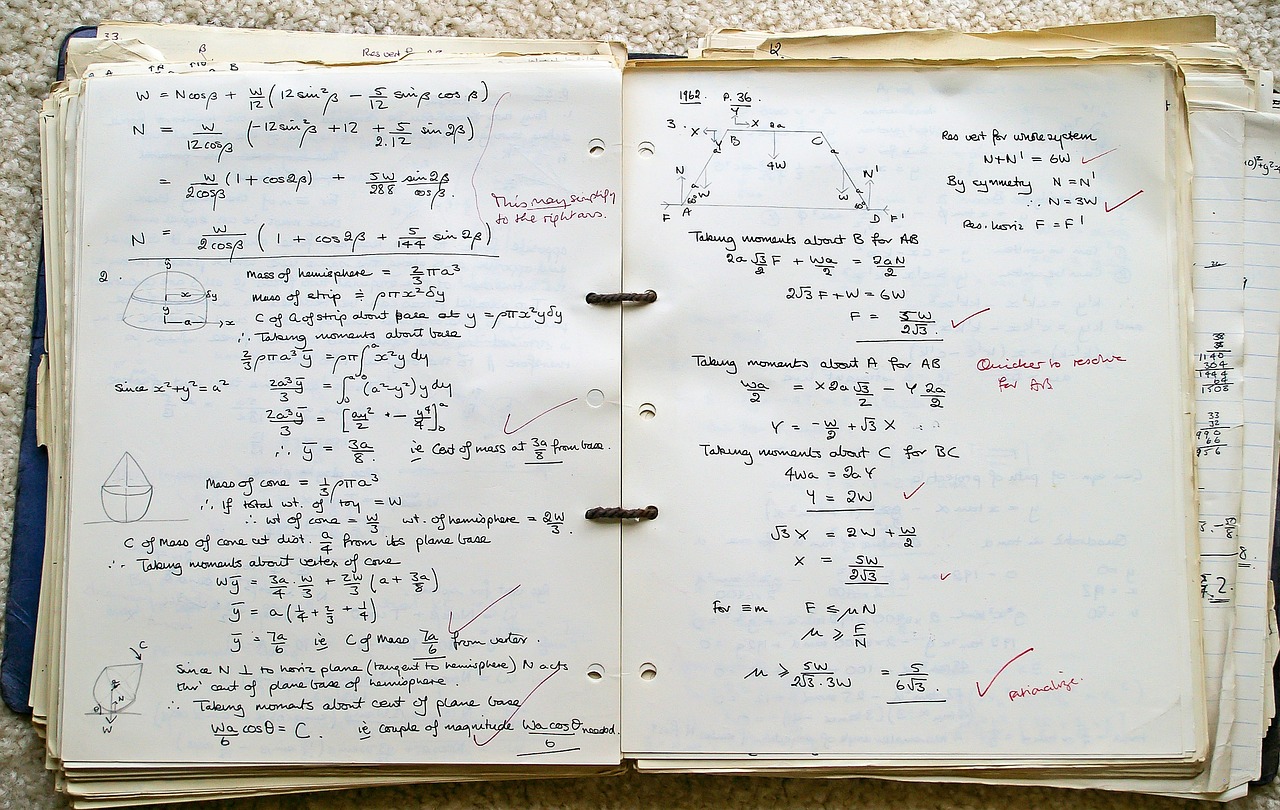 33.
β
Res vert
W = Ncosβ + W/12 (12sin²β − 5/12 sinβ cosβ)
N = W/12cosβ (−12sin²β + 12 + 5/2.12 sin2β)
= W/2cosβ (1 + cos2β) + 5W/288 sin2β/cosβ.
This may simplify
to the right ans.
N = W/2cosβ (1 + cos2β + 5/144 sin2β)
2.
y
x δy
y
a x
Mass of hemisphere = 2/3 πa³
Mass of strip ≑ ρπx²δy
C of G of strip about base at y = ρπx²yδy
∴ Taking moments about base
2/3 ρπa³ȳ = ρπ∫₀ᵃ x²y dy
Since x²+y²=a² 2a³ȳ/3 = ∫₀ᵃ (a²−y²)y dy
2a³ȳ/3 = [ay²/2 − y⁴/4]₀ᵃ
∴ ȳ = 3a/8 ie Cent of mass at 3a/8 from base.
Mass of cone = 1/3 ρπa³
∴ If total wt. of toy = W
∴ wt of cone = W/3 wt. of hemisphere = 2W/3.
C of Mass of cone at dist. a/4 from its plane base
∴ Taking moments about vertex of cone
Wȳ = 3a/4 . W/3 + 2W/3 (a + 3a/8)
ȳ = a(1/4 + 2/3 + 1/4)
ȳ = 7a/6 ie C of Mass 7a/6 from vertex.
C
N
θ
W
Since N ⊥ to horiz plane (tangent to hemisphere) N acts
thro' cent of plane base of hemisphere.
∴ Taking moments about cent of plane base
Wa/6 cosθ = C. ie couple of magnitude Wa cosθ/6 needed.
12.
1962. P. 36.
3.
Y
X X 2a
Y B C
a a
4W
N N'
a W W a
60° 60°
F A D F'
Res vert for whole system
N+N' = 6W
By symmetry N = N'
∴ N = 3W
Res. horiz F = F'
Taking moments about B for AB
2a √3/2 F + Wa/2 = 2aN/2
2√3 F + W = 6W
F = 5W/2√3.
Taking moments about A for AB
Quicker to resolve
for AB
Wa/2 = X2a √3/2 − Y 2a/2
Y = −W/2 + √3 X
Taking moments about C for BC
4Wa = 2aY
Y = 2W
√3 X = 2W + W/2
X = 5W/2√3
For ≡m F ≤ μN
μ ≥ F/N
μ ≥ 5W/2√3.3W = 5/6√3.
rationalize.
38
38
1140
304
1444
64
1508
33
32
990
66
956